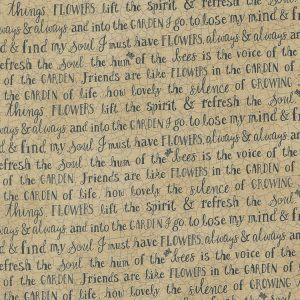 things FLOWERS lift the spirit & refresh the soul
ways & always and into the GARDEN I go to lose my mind & f
d & find my Soul I must have FLOWERS, always & always an
refresh the Soul the hum of the bees is the voice of the
of the GARDEN. Friends are like FLOWERS in the GARDEN of
the GARDEN of life. how lovely the silence of GROWING
things FLOWERS lift the spirit & refresh the Soul
ways & always and into the GARDEN I go to lose my mind & f
d & find my Soul I must have FLOWERS, always & always an
refresh the Soul the hum of the bees is the voice of the
of the GARDEN. Friends are like FLOWERS in the GARDEN of
the GARDEN of life. how lovely the silence of GROWING
things FLOWERS lift the spirit & refresh the Soul
ways & always and into the GARDEN I go to lose my mind & f
d & find my Soul I must have FLOWERS, always & always and
refresh the Soul the hum of the bees is the voice of the
of the GARDEN. Friends are like FLOWERS in the GARDEN of
the GARDEN of life. how lovely the silence of GROWING